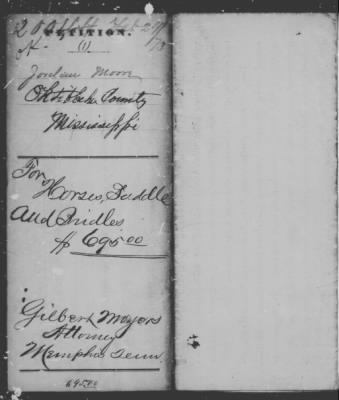 PETITION.
(1)
Jordan Moore
Oktibbeha County
Mississippi
For
Horses, Saddle
And Bridles
$ 695.00
Gilbert Moyers
Attorney
Memphis Tenn
695.00